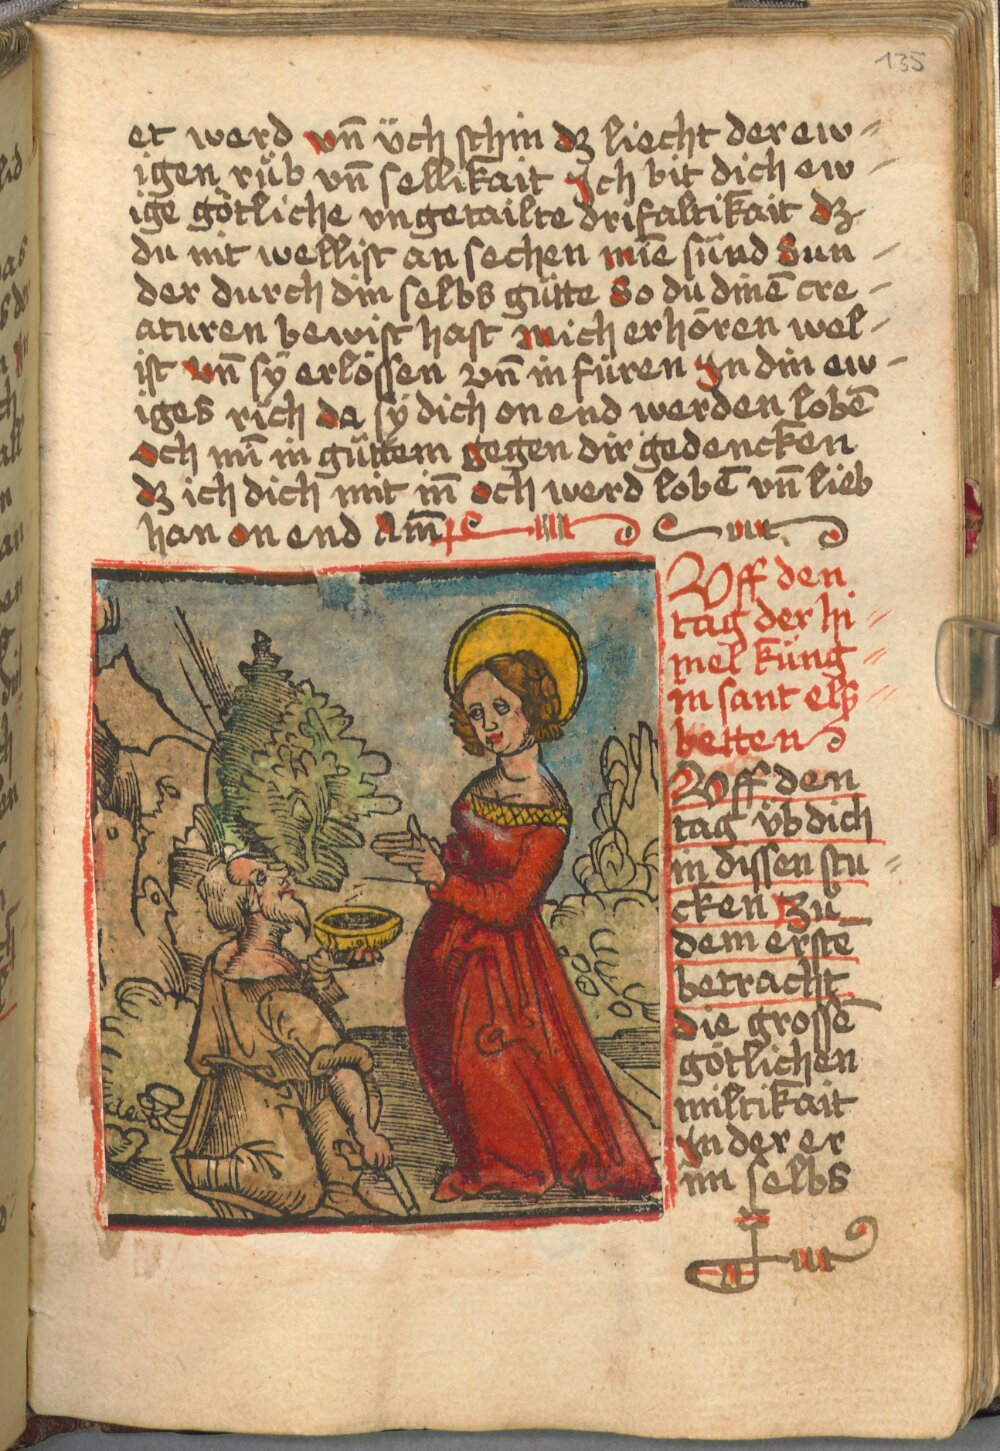 135
et werd vn̄ v̈ch schin dʒ liecht der ew⸗
igen rüb vn̄ sellikait Jch bit dich ew⸗
ige götliche vngetailte drifaltikait dʒ
du nit wellist an sechen mīe sünd Sun⸗
der durch din selbs gütte So du dinē cre⸗
aturen bewist hast mich erhören wel⸗
ist vn̄ sÿ erlössen vn̄ in füren Jn din ew⸗
iges rich da sÿ dich on end werden lobē
och mī in güttem gegen dir gedencken
dʒ ich dich mit in̄ och werd lobē vn̄ lieb
han on end Am̄
Vff den
tag der hi⸗
mel küng⸗
in sant elß⸗
betten
Vff den
tag v̈b dich
in dissen stu⸗
cken Zu
dem erstē
betracht
die grossē
götlichen
miltikait
Jn der er
im selbs